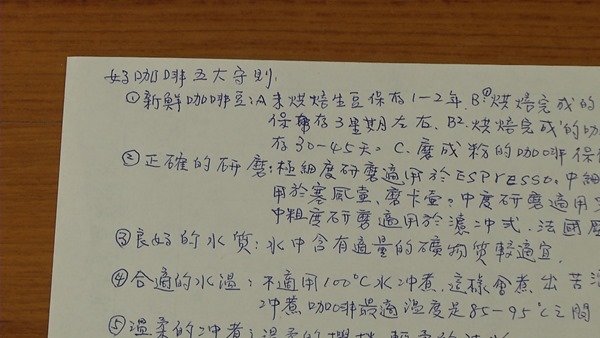 好咖啡五大守則.
①新鮮咖啡豆:A.未烘焙生豆保存1-2年.B①.烘焙完成的
保存3星期左右.B2.烘焙完成的咖
存30-45天。C.磨成粉的咖啡保
②正確的研磨:極細度研磨適用於ESPRESSO.中細
用於塞風壺、磨卡壺。中度研磨適用
中粗度研磨適用於濾沖式.法國
③良好的水質:水中含有適量的礦物質較適宜.
④合適的水溫:不適用100℃水沖煮.這樣會煮出苦
沖煮咖啡最適溫度是85-95℃之間
⑤溫柔的沖煮:溫柔的